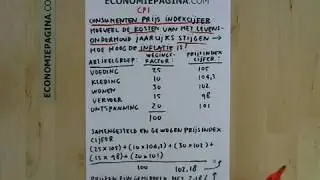 ECONOMIEPAGINA.COM
CPI
CONSUMENTEN PRIJS INDEXCIJFER
HOEVEEL DE KOSTEN VAN HET LEVENS-
ONDERHOUD JAARLIJKS STIJGEN →
HOE HOOG DE INFLATIE IS?
ARTIKELGROEP: WEGINGS-FACTOR: PRIJSINDEX CIJFER:
VOEDING 25 105
KLEDING 10 104,3
WONEN 30 102
VERVOER 15 98
ONTSPANNING 20 101
100
SAMENGESTELD EN GEWOGEN PRIJSINDEX
CIJFER
(25 x 105) + (10 x 104,3) + (30 x 102) +
(15 x 98) + (20 x 101)
100 102,18
ECONOMIEPAGINA.COM